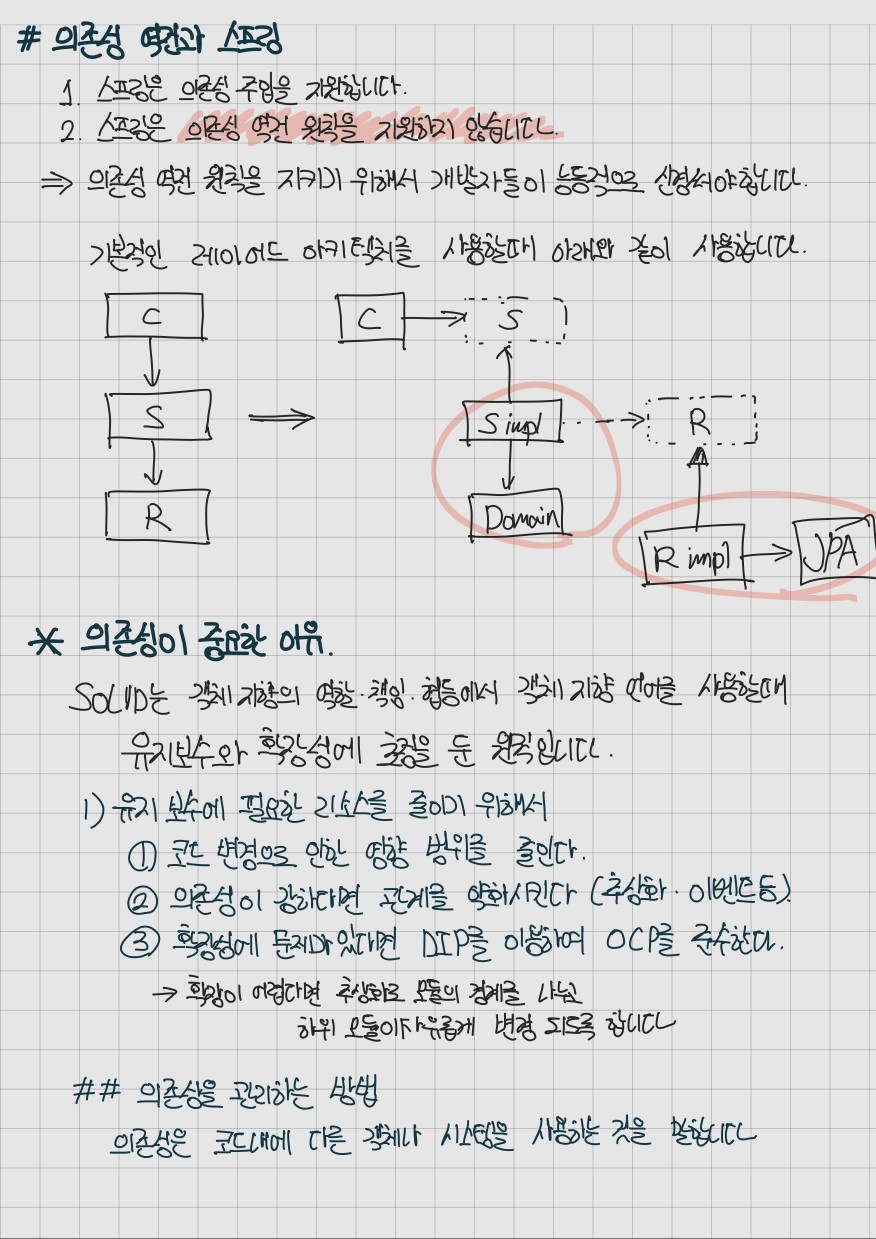 # 의존성 역전과 스프링
1. 스프링은 의존성 주입을 지원합니다.
2. 스프링은 의존성 역전 원칙을 지원하지 않습니다.
⇒ 의존성 역전 원칙을 지키기 위해서 개발자들이 능동적으로 신경써야합니다.
기본적인 레이어드 아키텍처를 사용할때 아래와 같이 사용합니다.
C
C → S
S ⇒ S impl → R
R
Domain
R impl → JPA
* 의존성이 중요한 이유.
SOLID는 객체지향의 역할·책임·협동에서 객체지향 언어를 사용할때
유지보수와 확장성에 초점을 둔 원칙입니다.
1) 유지 보수에 필요한 리소스를 줄이기 위해서
① 코드 변경으로 인한 영향 범위를 줄인다.
② 의존성이 강하다면 관계를 약화시킨다 (추상화·이벤트등).
③ 확장성에 문제가 있다면 DIP를 이용하여 OCP를 준수한다.
→ 확장이 어렵다면 추상화로 모듈의 경계를 나눕고
하위 모듈이 자유롭게 변경 되도록 합니다
## 의존성을 관리하는 방법
의존성은 코드내에 다른 객체나 시스템을 사용하는 것을 말합니다